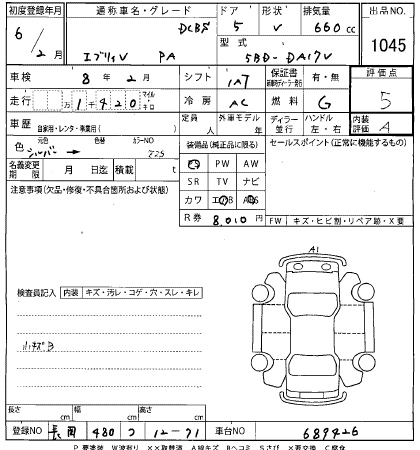 初度登録年月 通称車名・グレード ドア 形状 排気量 出品NO.
6/2月 エブリィV PA DCBS 5 V 660cc 1045
型式 5BD-DA17V
車検 8年2月 シフト IAT 保証書 有・無 評価点
走行 1千420 マイル キロ 冷房 AC 燃料 G 5
車歴 自家用・レンタ・事業用( ) 定員 人 外車モデル 年 ディーラー 並行 ハンドル 左・右 内装評価 A
色 元色 シルバー → 色替 カラーNO Z2S 装備品(純正品に限る) セールスポイント(正常に機能するもの)
名義変更期限 月 日迄 積載 t PW AW
注意事項(欠品・修復・不具合箇所および状態) SR TV ナビ
カワ エアB ABS
R券 8,010円 FW キズ・ヒビ割・リペア跡・X要
A1
検査員記入 内装 キズ・汚レ・コゲ・穴・スレ・キレ
長さ cm 幅 cm 高さ cm
登録NO 長岡 480 つ 12-71 車台NO 689426
P 要塗装 W波有り ××取替済 A線キズ Bヘコミ Sさび ×要交換 C腐食